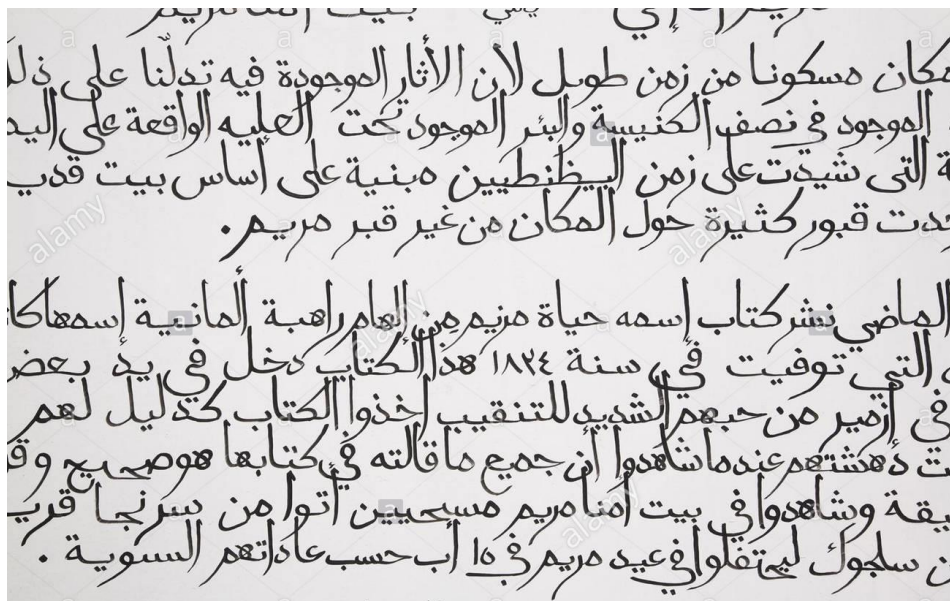 مسكونا من زمن طويل لأن الأثار الموجودة فيه تدلّنا على
الموجود في نصف الكنيسة والبئر الموجود تحت العليه الواقعة على
التى شيدت على زمن البيظنطيين مبنية على إساس بيت
قبور كثيرة حول المكان من غير قبر مريم .
الماضي نشر كتاب إسمه حياة مريم من إلهام راهبة ألمانية إسمها
التي توفيت في سنة ١٨٢٤ هذا الكتاب دخل في يد بعض
في أزمير من حبهم الشديد للتنقيب أخذوا الكتاب كدليل لهم
دهشتهم عندما شاهدوا أن جميع ما قالته في كتابها هو صحيح
وشاهدوا في بيت أمنا مريم مسحيين أتوا من
سلجوك ليحتفلوا في عيد مريم في ١٥ أب حسب عاداتهم السنوية .
alamy